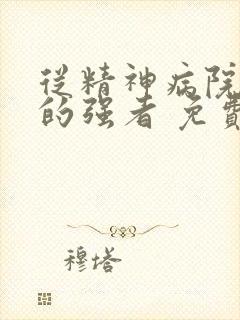 從精神病院
的强者 免費
穆塔